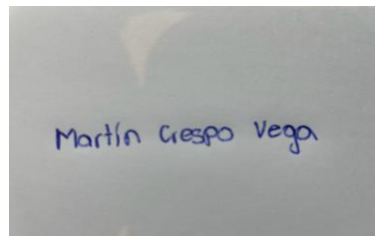 Martín Crespo Vega